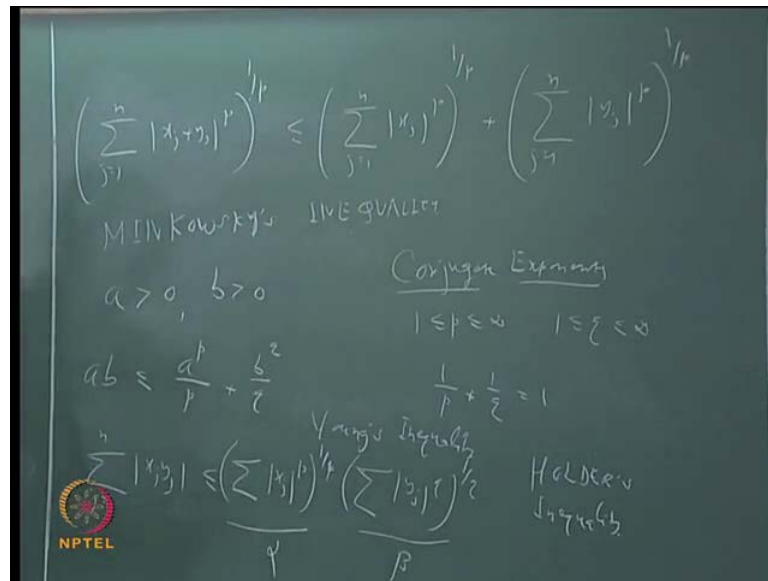 (∑_{j=1}^{n} |x_j+y_j|^p)^{1/p} ≤ (∑_{j=1}^{n} |x_j|^p)^{1/p} + (∑_{j=1}^{n} |y_j|^p)^{1/p}
MINKOWSKY'S INEQUALITY
a > 0, b > 0
Conjugate Exponents
1 ≤ p ≤ ∞ 1 ≤ q ≤ ∞
ab ≤ a^p/p + b^q/q
1/p + 1/q = 1
Young's Inequality
∑^{n} |x_j y_j| ≤ (∑ |x_j|^p)^{1/p} (∑ |y_j|^q)^{1/q}
HOLDER'S
Inequality
α β
NPTEL